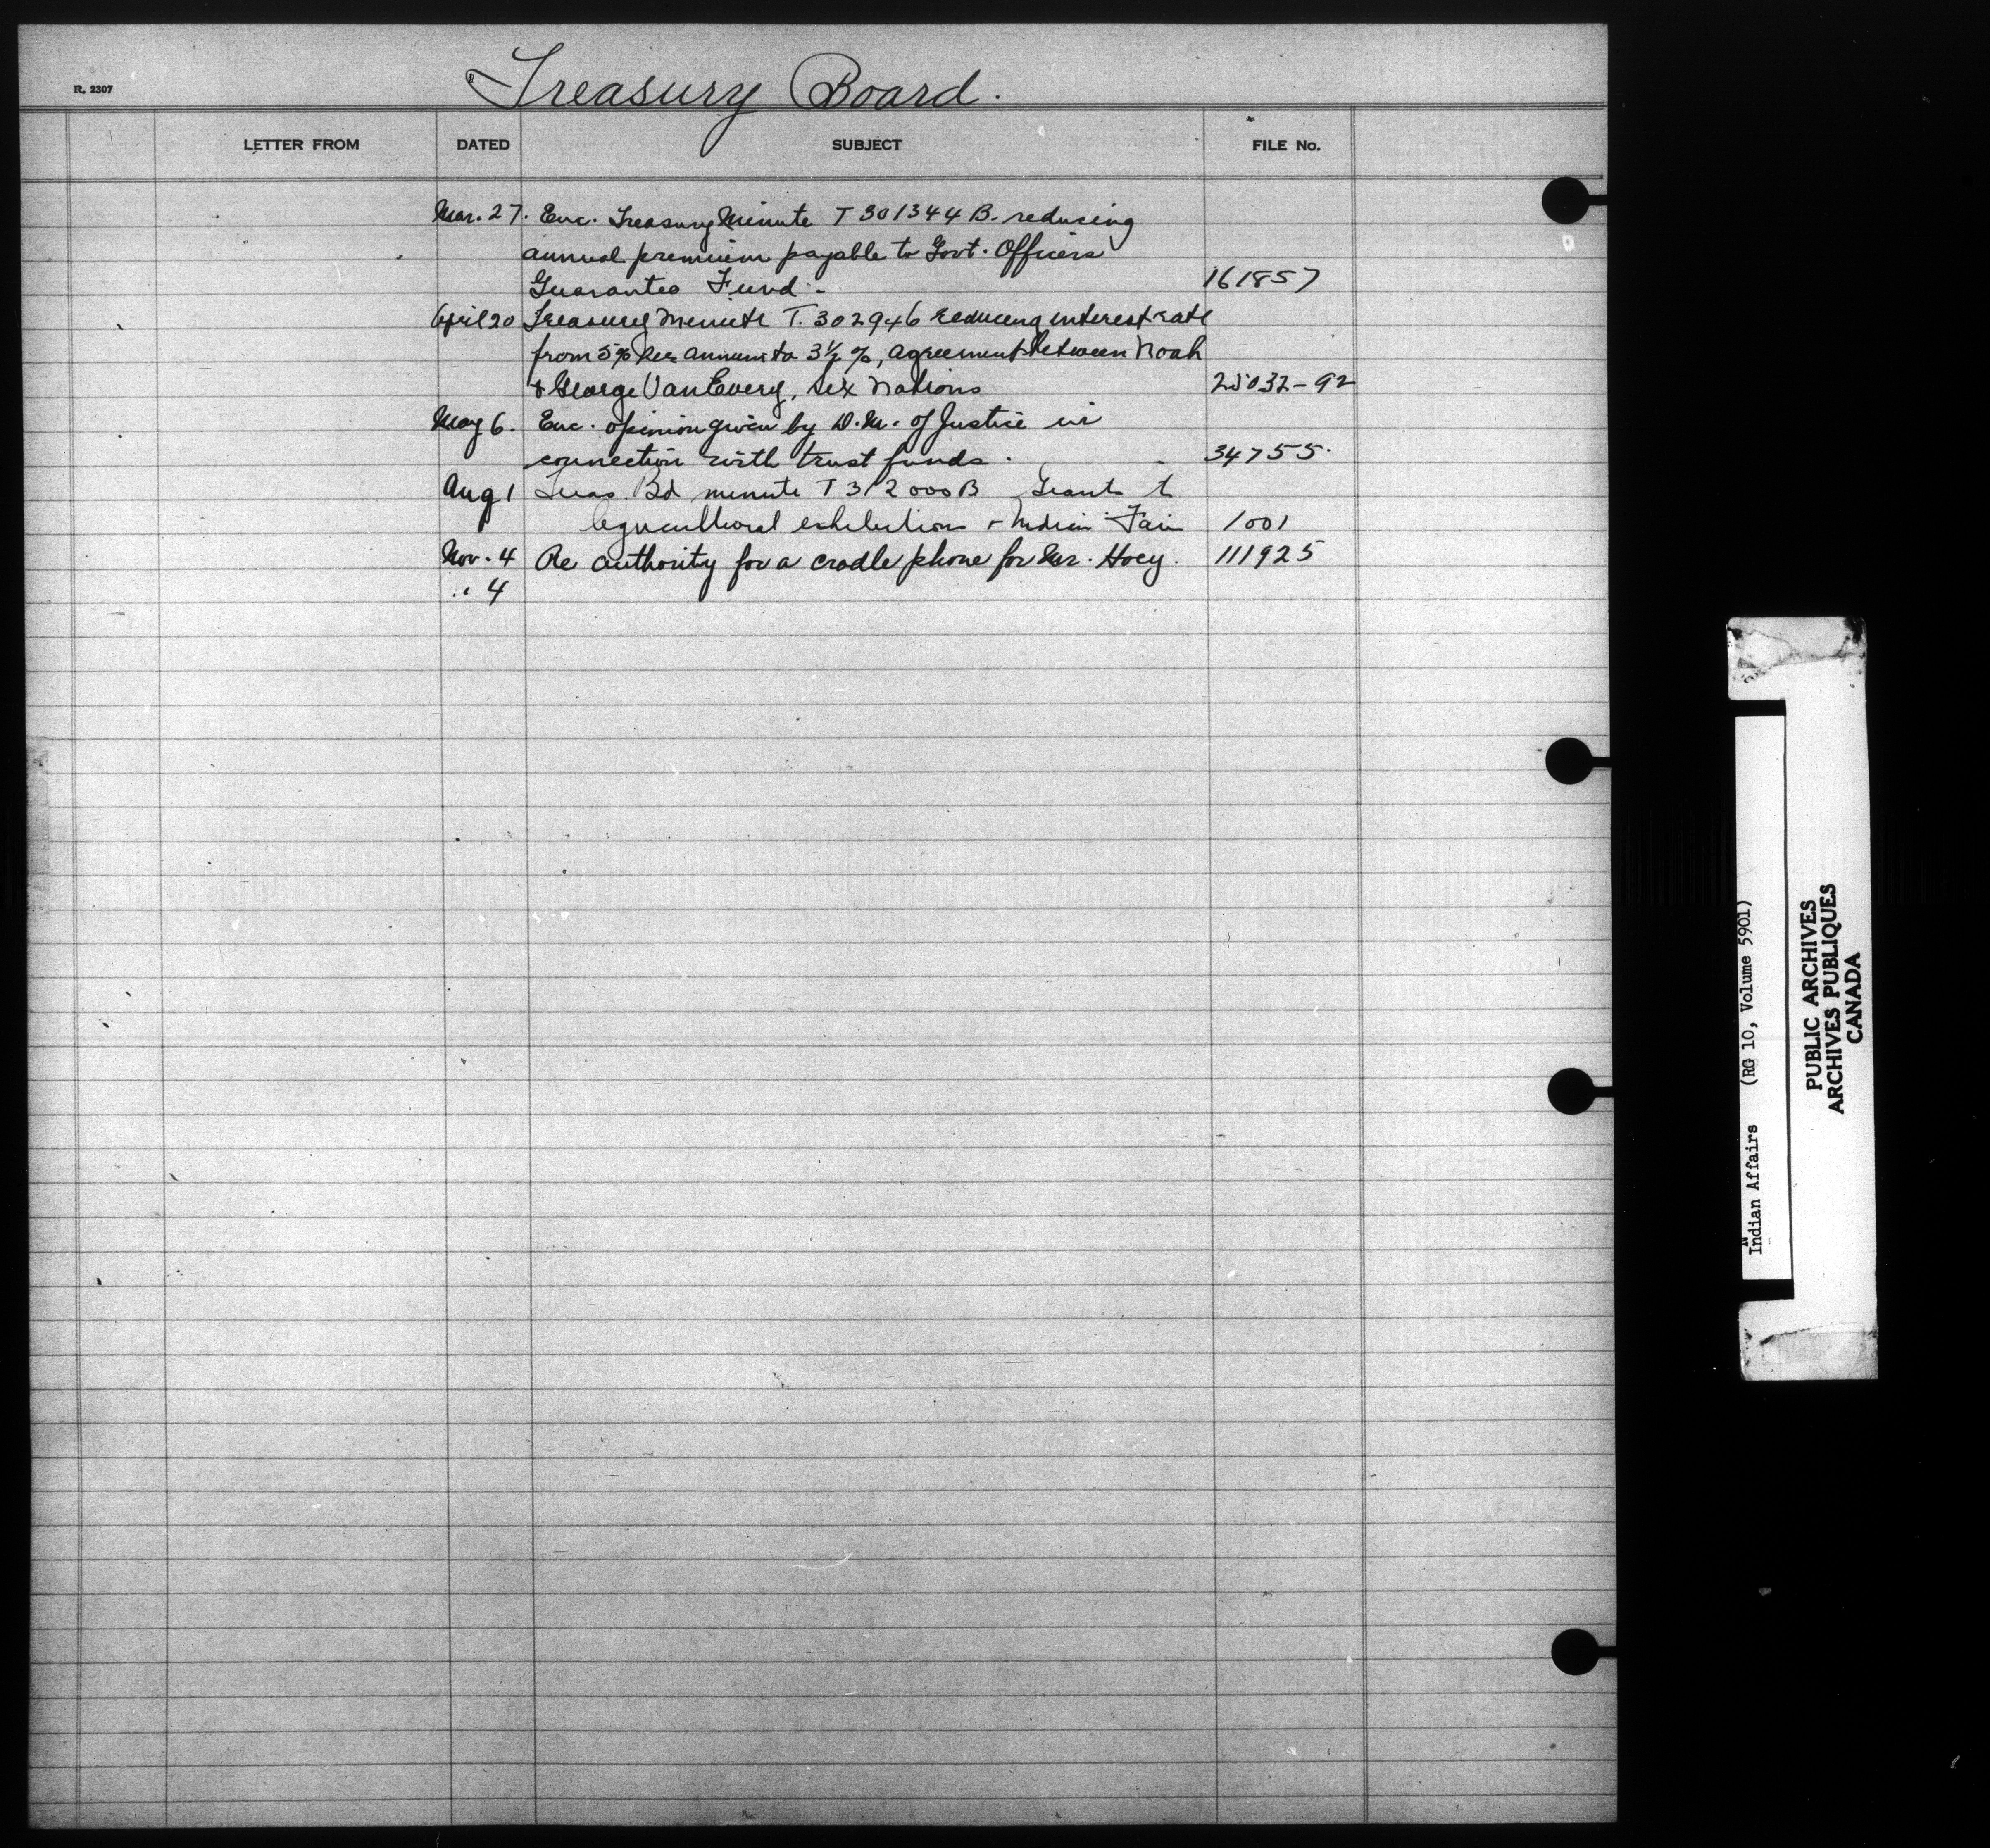 R. 2307
Treasury Board.
LETTER FROM DATED SUBJECT FILE No.
Mar. 27. Enc. Treasury Minute T 301344 B. reducing
annual premium payable to Govt. Officers
Guarantee Fund. 161857
April 20 Treasury Minute T. 302946 reducing interest rate
from 5% per annum to 3½%, agreement between Noah
& George VanEvery, Six Nations 25032-92
May 6. Enc. opinion given by D.M. of Justice in
connection with trust funds. 34755.
Aug 1 Treas. Bd minute T 312000B Grants to
Agricultural exhibitions & Indian Fair 1001
Nov. 4 Re authority for a cradle phone for Mr. Hoey. 111925
" 4
Indian Affairs (RG 10, Volume 5901)
PUBLIC ARCHIVES
ARCHIVES PUBLIQUES
CANADA